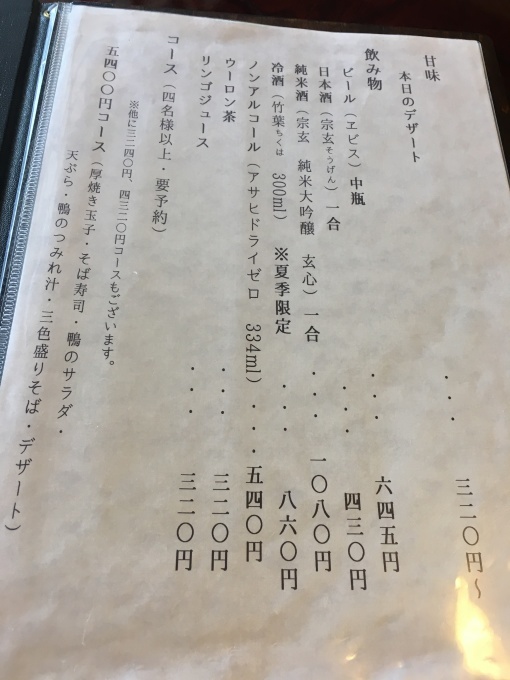 甘味
本日のデザート ・・・ 三二〇円～
飲み物
ビール（ヱビス）中瓶 ・・・ 六四五円
日本酒（宗玄そうげん）一合 ・・・ 四三〇円
純米酒（宗玄 純米大吟醸 玄心）一合 ・・・ 一〇八〇円
冷酒（竹葉ちくは 300ml）※夏季限定 ・・・ 八六〇円
ノンアルコール（アサヒドライゼロ 334ml）・・・ 五四〇円
ウーロン茶 ・・・ 三二〇円
リンゴジュース ・・・ 三二〇円
コース（四名様以上・要予約）
※他に三二四〇円、四三二〇円コースもございます。
五四〇〇円コース（厚焼き玉子・そば寿司・鴨のサラダ・
天ぷら・鴨のつみれ汁・三色盛りそば・デザート）